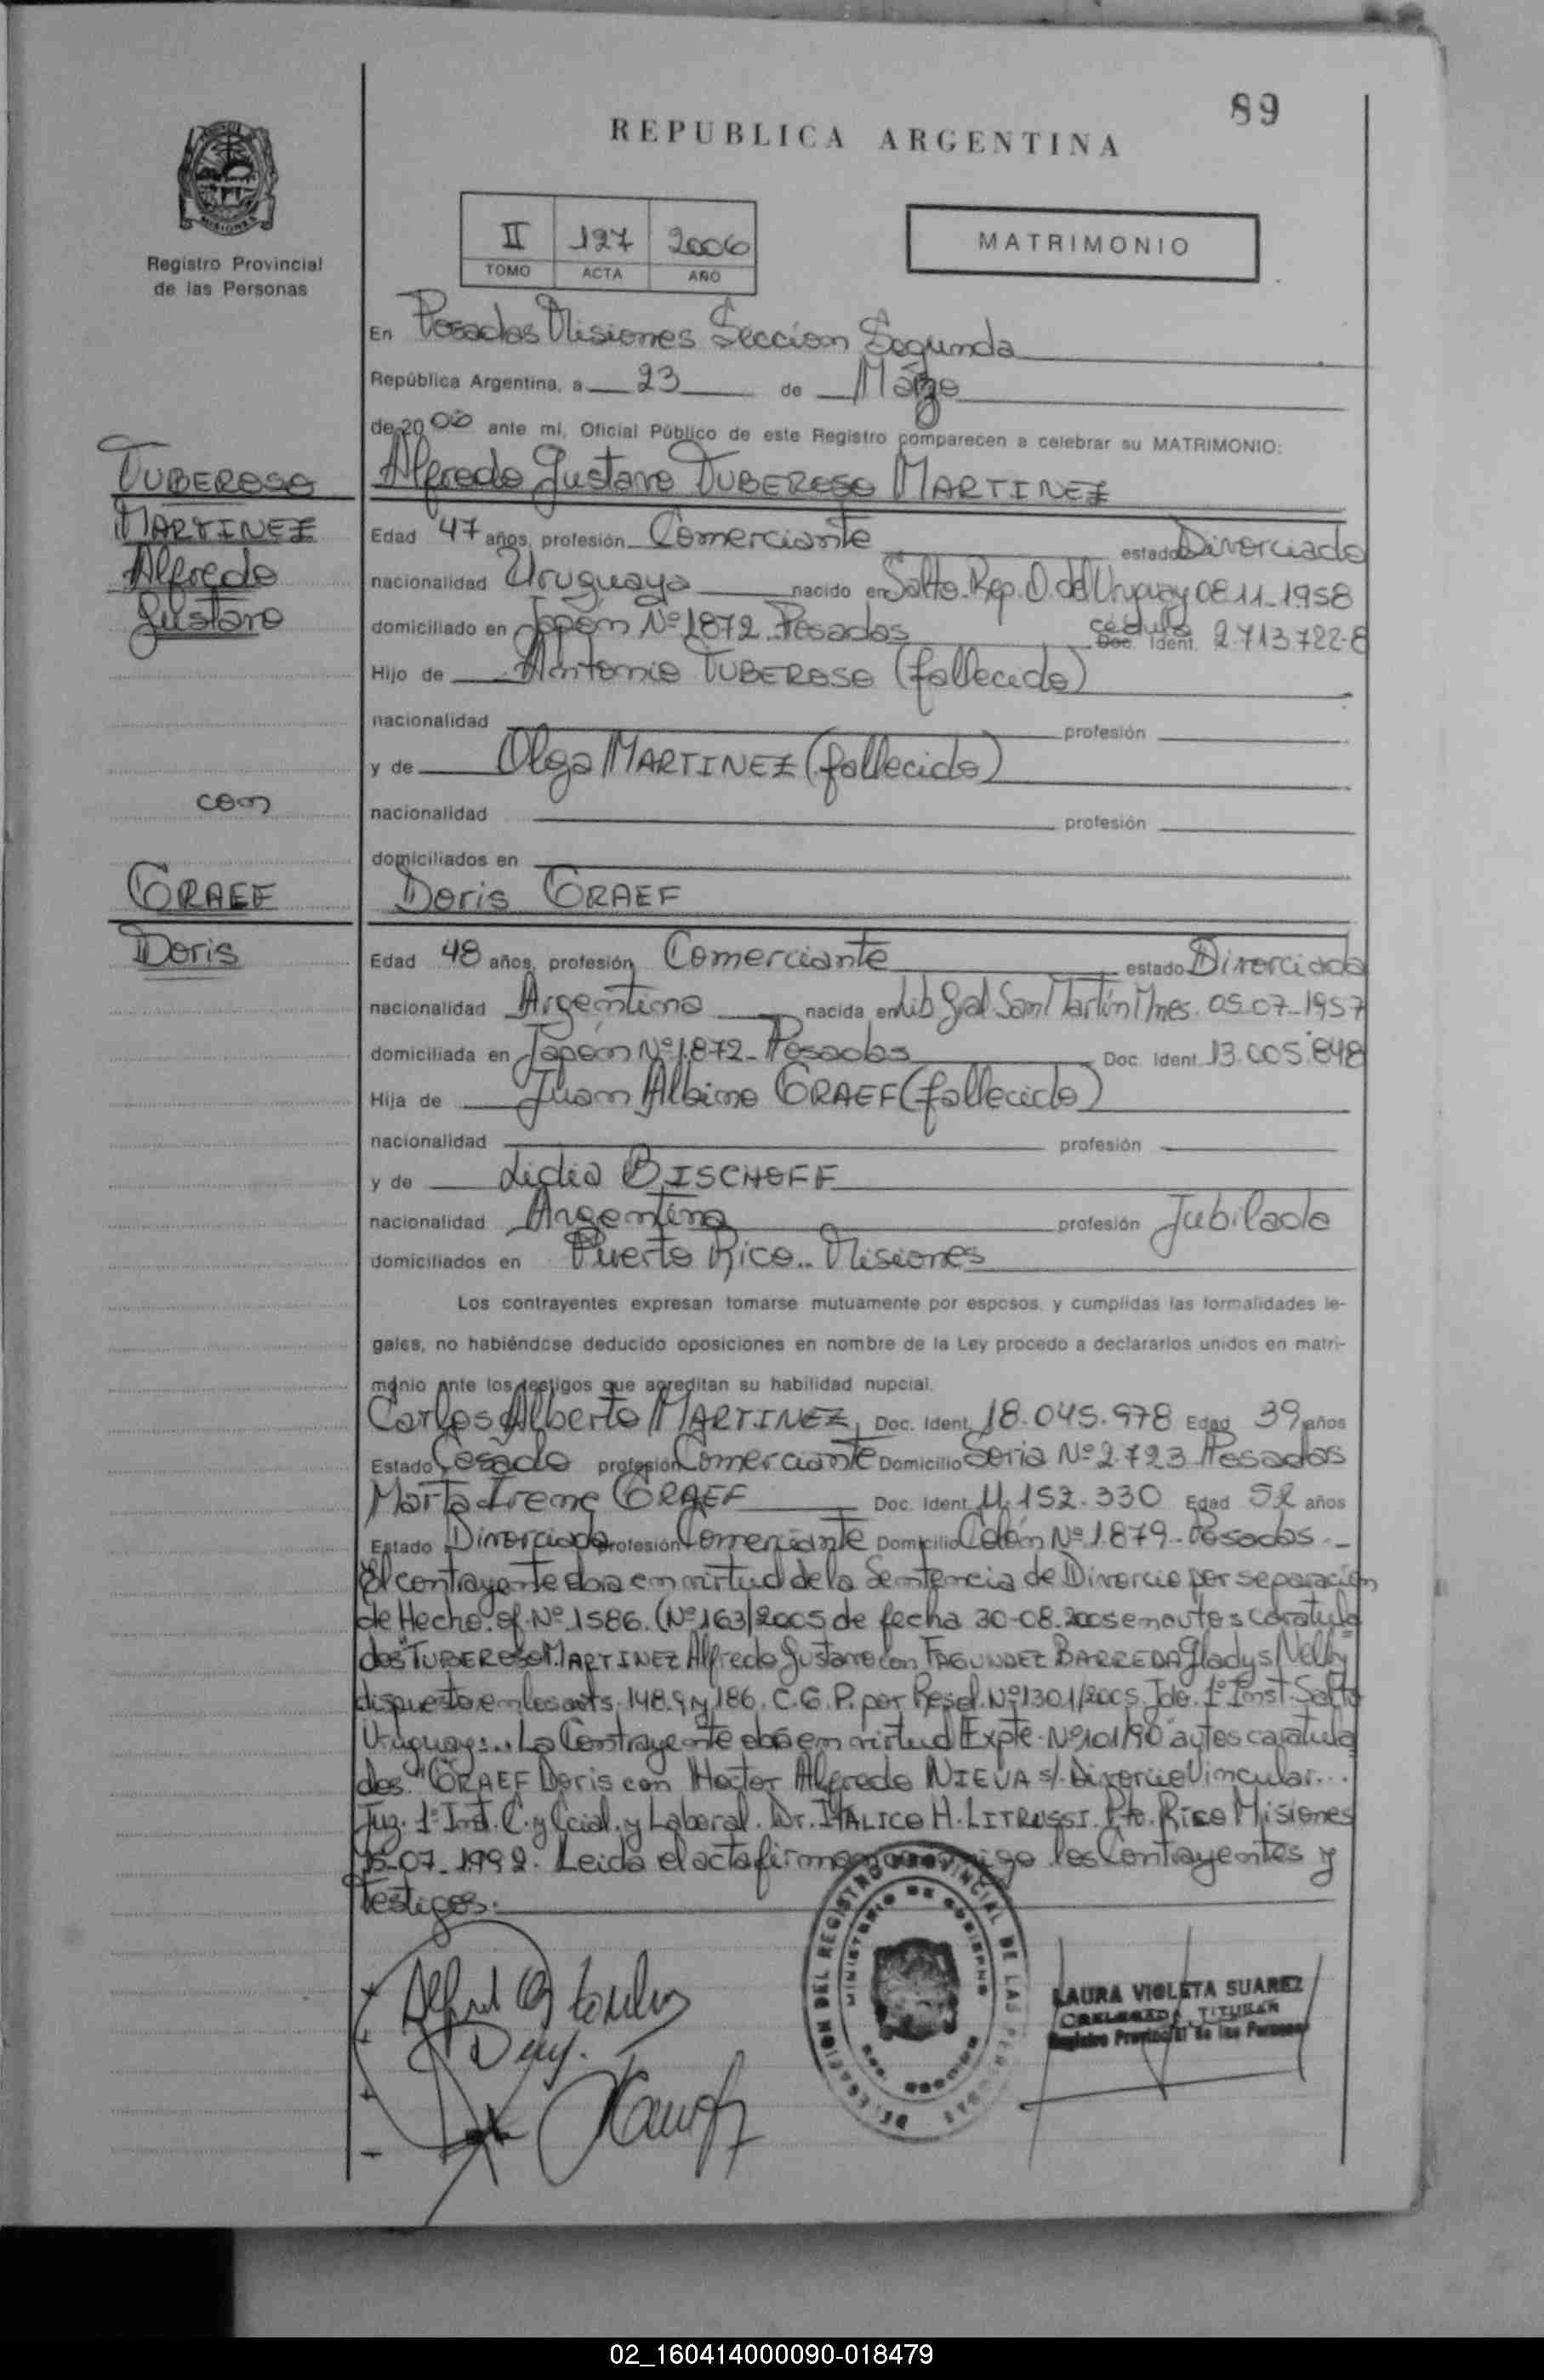 89
REPUBLICA ARGENTINA
MISIONES
Registro Provincial
de las Personas
II 127 2006
TOMO ACTA AÑO
MATRIMONIO
En Posadas Misiones Seccion Segunda
República Argentina, a 23 de Marzo
de 20 06 ante mí, Oficial Público de este Registro comparecen a celebrar su MATRIMONIO:
TUBEROSO
MARTINEZ
Alfredo
Gustavo
Alfredo Gustavo TUBEROSO MARTINEZ
Edad 47 años, profesión Comerciante estado Divorciado
nacionalidad Uruguaya nacido en Salto Rep. O. del Uruguay 08.11.1958
domiciliado en Japón Nº 1872 Posadas cédula Doc. Ident. 2.713.722-8
Hijo de Antonio TUBEROSO (fallecido)
nacionalidad profesión
y de Olga MARTINEZ (fallecida)
nacionalidad profesión
domiciliados en
con
GRAEF
Doris
Doris GRAEF
Edad 48 años, profesión Comerciante estado Divorciada
nacionalidad Argentina nacida en Lib Gral San Martín Mnes. 05.07.1957
domiciliada en Japón Nº 1.872 - Posadas Doc. Ident. 13.005.848
Hija de Juan Albino GRAEF (fallecido)
nacionalidad profesión
y de Lidia BISCHOFF
nacionalidad Argentina profesión Jubilada
domiciliados en Puerto Rico.. Misiones
Los contrayentes expresan tomarse mutuamente por esposos, y cumplidas las formalidades le-
gales, no habiéndose deducido oposiciones en nombre de la Ley procedo a declararlos unidos en matri-
monio ante los testigos que acreditan su habilidad nupcial.
Carlos Alberto MARTINEZ Doc. Ident. 18.045.978 Edad 39 años
Estado Casado profesión Comerciante Domicilio Soria Nº 2.723 Posadas
Marta Irene GRAEF Doc. Ident. 11.152.330 Edad 52 años
Estado Divorciada profesión Comerciante Domicilio Colón Nº 1.879 - Posadas.-
El contrayente obra en virtud de la Sentencia de Divorcio por separación
de Hecho. of. Nº 1586. (Nº 163/2005 de fecha 30-08.2005 en autos caratula
dos "TUBEROSO MARTINEZ Alfredo Gustavo con FAGUNDEZ BARREDA Gladys Nelly"
dispuesto en los arts. 148.9 y 186. C.G.P. por Resol. Nº 1301/2005. Jdo. 1º Inst. Salto
Uruguay:.. La Contrayente obra en virtud Expte. Nº 101/90 autos caratula
dos "GRAEF Doris con Hector Alfredo NIEVA s/. Divorcio Vincular...
Juz. 1º Inst. C. y Ccial. y Laboral. Dr. ITALICO H. LITRUSSI. Pto. Rico Misiones
-07.1992. Leida el acta firman conmigo los Contrayentes y
Testigos:
DELEGACION DEL REGISTRO PROVINCIAL DE LAS PERSONAS
MINISTERIO DE GOBIERNO
LAURA VIOLETA SUAREZ
DELEGADA TITULAR
Registro Provincial de las Personas
02_160414000090-018479